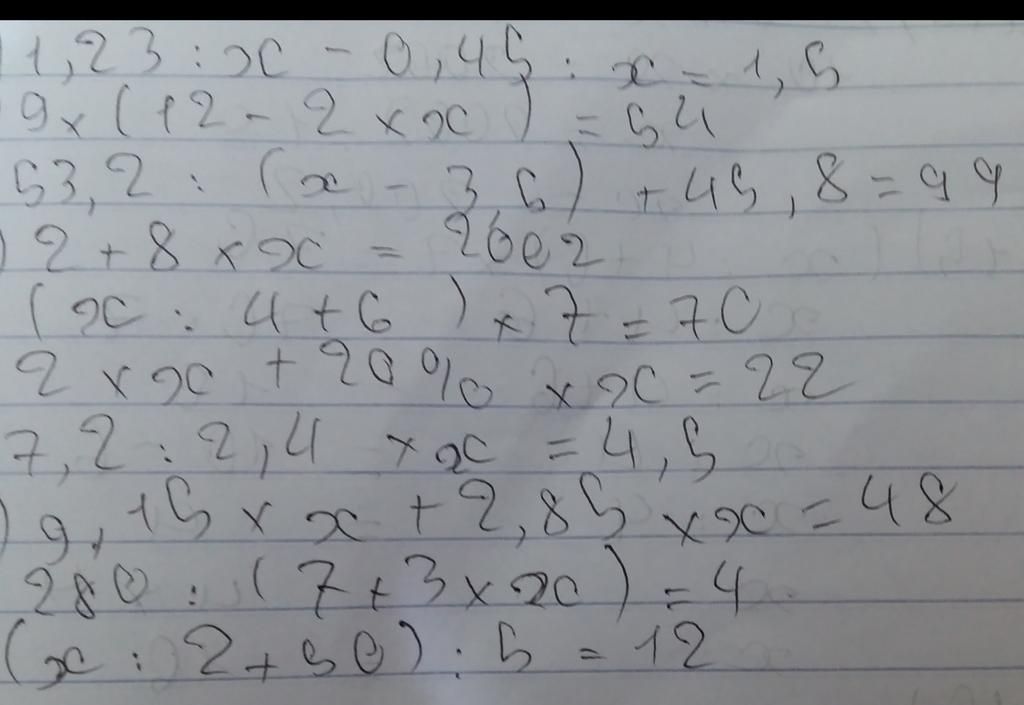 ) 1,23 : x - 0,45 : x = 1,5
9 x (12 - 2 x x) = 54
53,2 : (x - 3 5) + 45,8 = 99
) 2 + 8 x x = 2002
(x : 4 + 6) x 7 = 70
2 x x + 20% x x = 22
7,2 : 2,4 x x = 4,5
) 9,15 x x + 2,85 x x = 48
280 : (7 + 3 x x) = 4
(x : 2 + 50) : 5 = 12